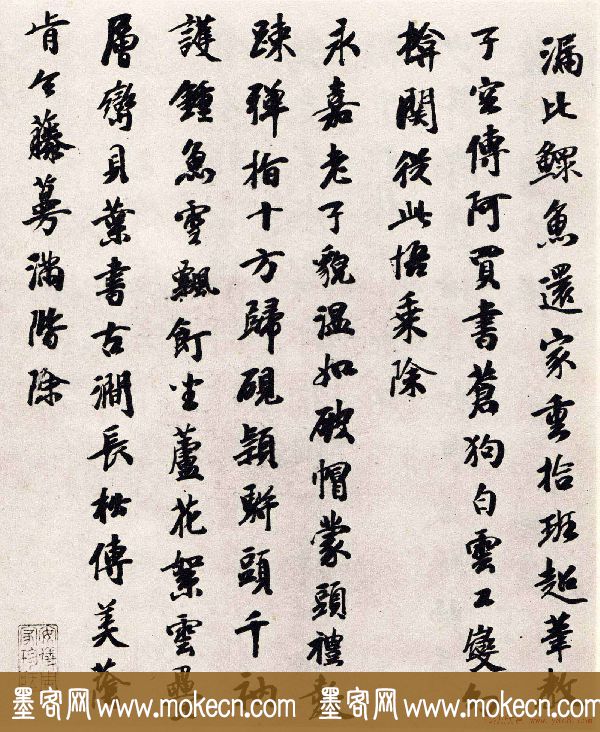 漏比鰥魚還家重拾班超筆教
子空傳阿買書蒼狗白雲工變幻
關從此悟乘除
永嘉老子貌溫如破帽蒙頭禮數
踈彈指十方歸硯頴駢頭千衲
護鍾魚雪飄飣坐蘆花絮雲疊
層巒貝葉書古澗長松傳美蔭
肯令藤蔓滿階除
墨客网 www.mokecn.com 墨客网 www.mokecn.com